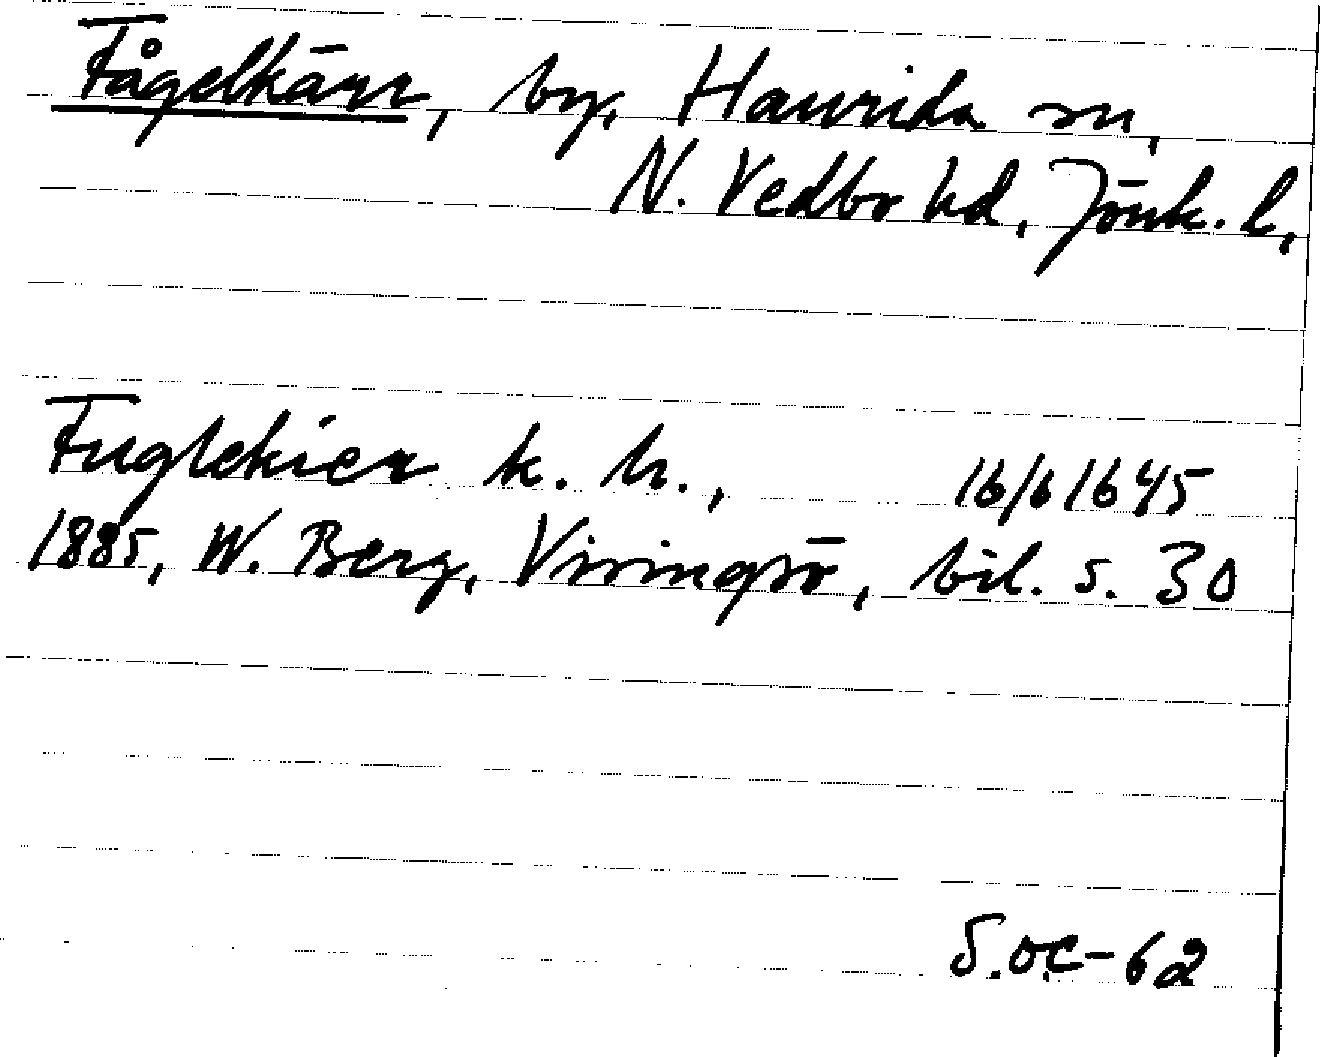 Fågelkärr, by, Haurida sn,
N. Vedbo hd, Jönk. l,
Fuglekierr k. h., 16/6 1645
1885, W. Berg, Visingsö, bil. s. 30
S.OC-62